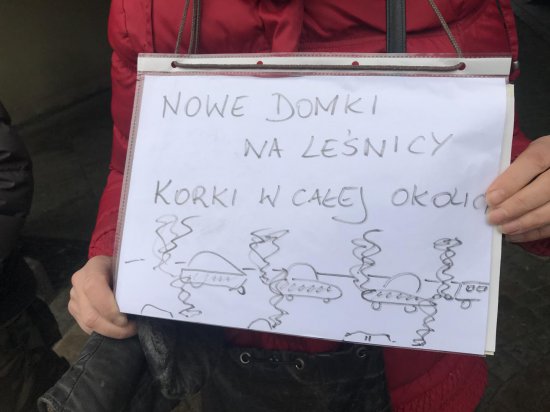 NOWE DOMKI
NA LEŚNICY
KORKI W CAŁEJ OKOLIC